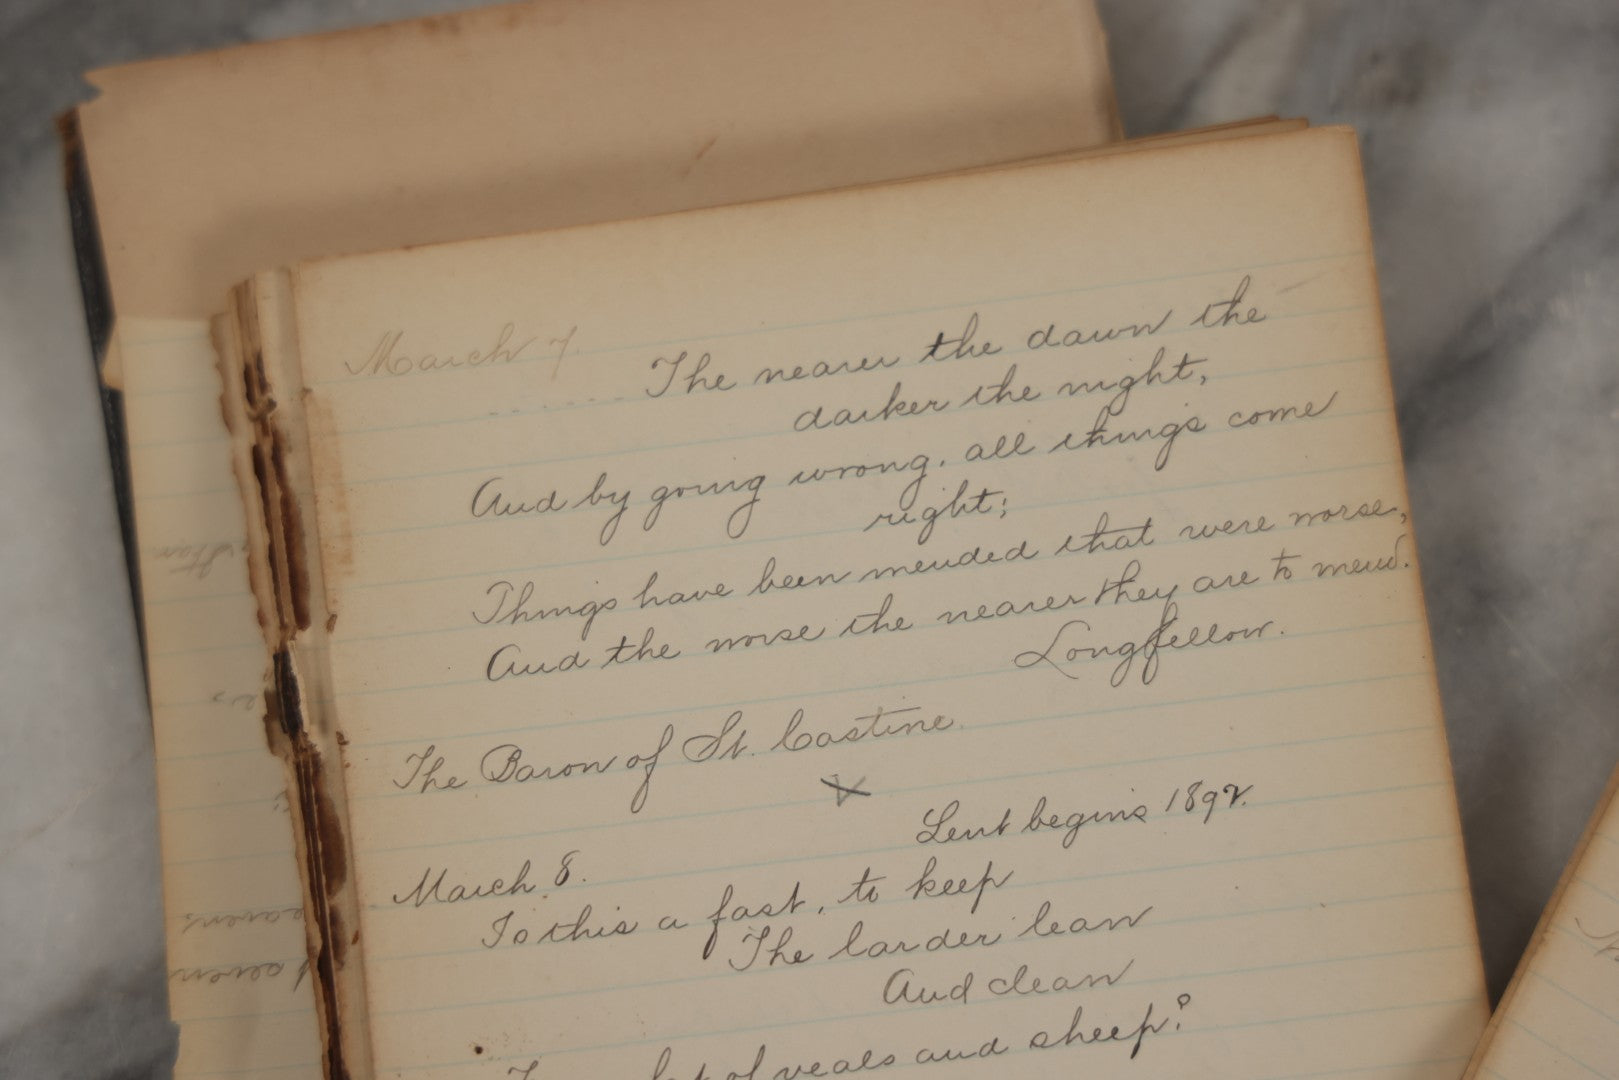 March 7.
. . . . . . . The nearer the dawn the
darker the night,
And by going wrong, all things come
right;
Things have been mended that were worse,
And the worse the nearer they are to mend.
Longfellow.
The Baron of St. Castine.
Lent begins 1892.
March 8.
Is this a fast, to keep
The larder lean
And clean
of veals and sheep?